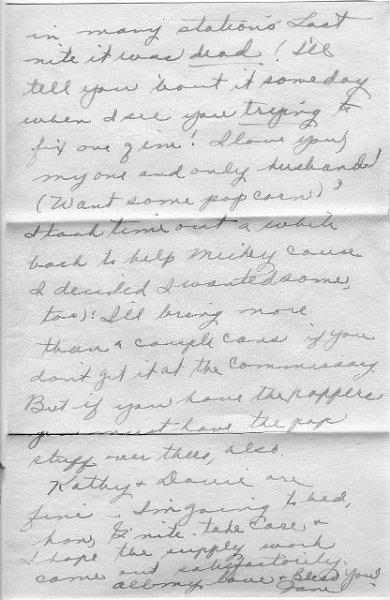 in many stations. Last
nite it was dead! I'll
tell you 'bout it someday
when I see you trying to
fix one of 'em! I love you,
my one and only husband!
(Want some pop corn)?
I took time out a while
back to help Mickey cause
I decided I wanted some,
too)! I'll bring more
than a couple cans if you
don't get it at the Commissary
But if you have the poppers
you must have the pop
stuff over there, also.
Kathy & are
fine - I'm going to bed,
hon, G'nite - take care &
I hope the supply work
came out satisfactorily.
all my love & Bless You!
Jane